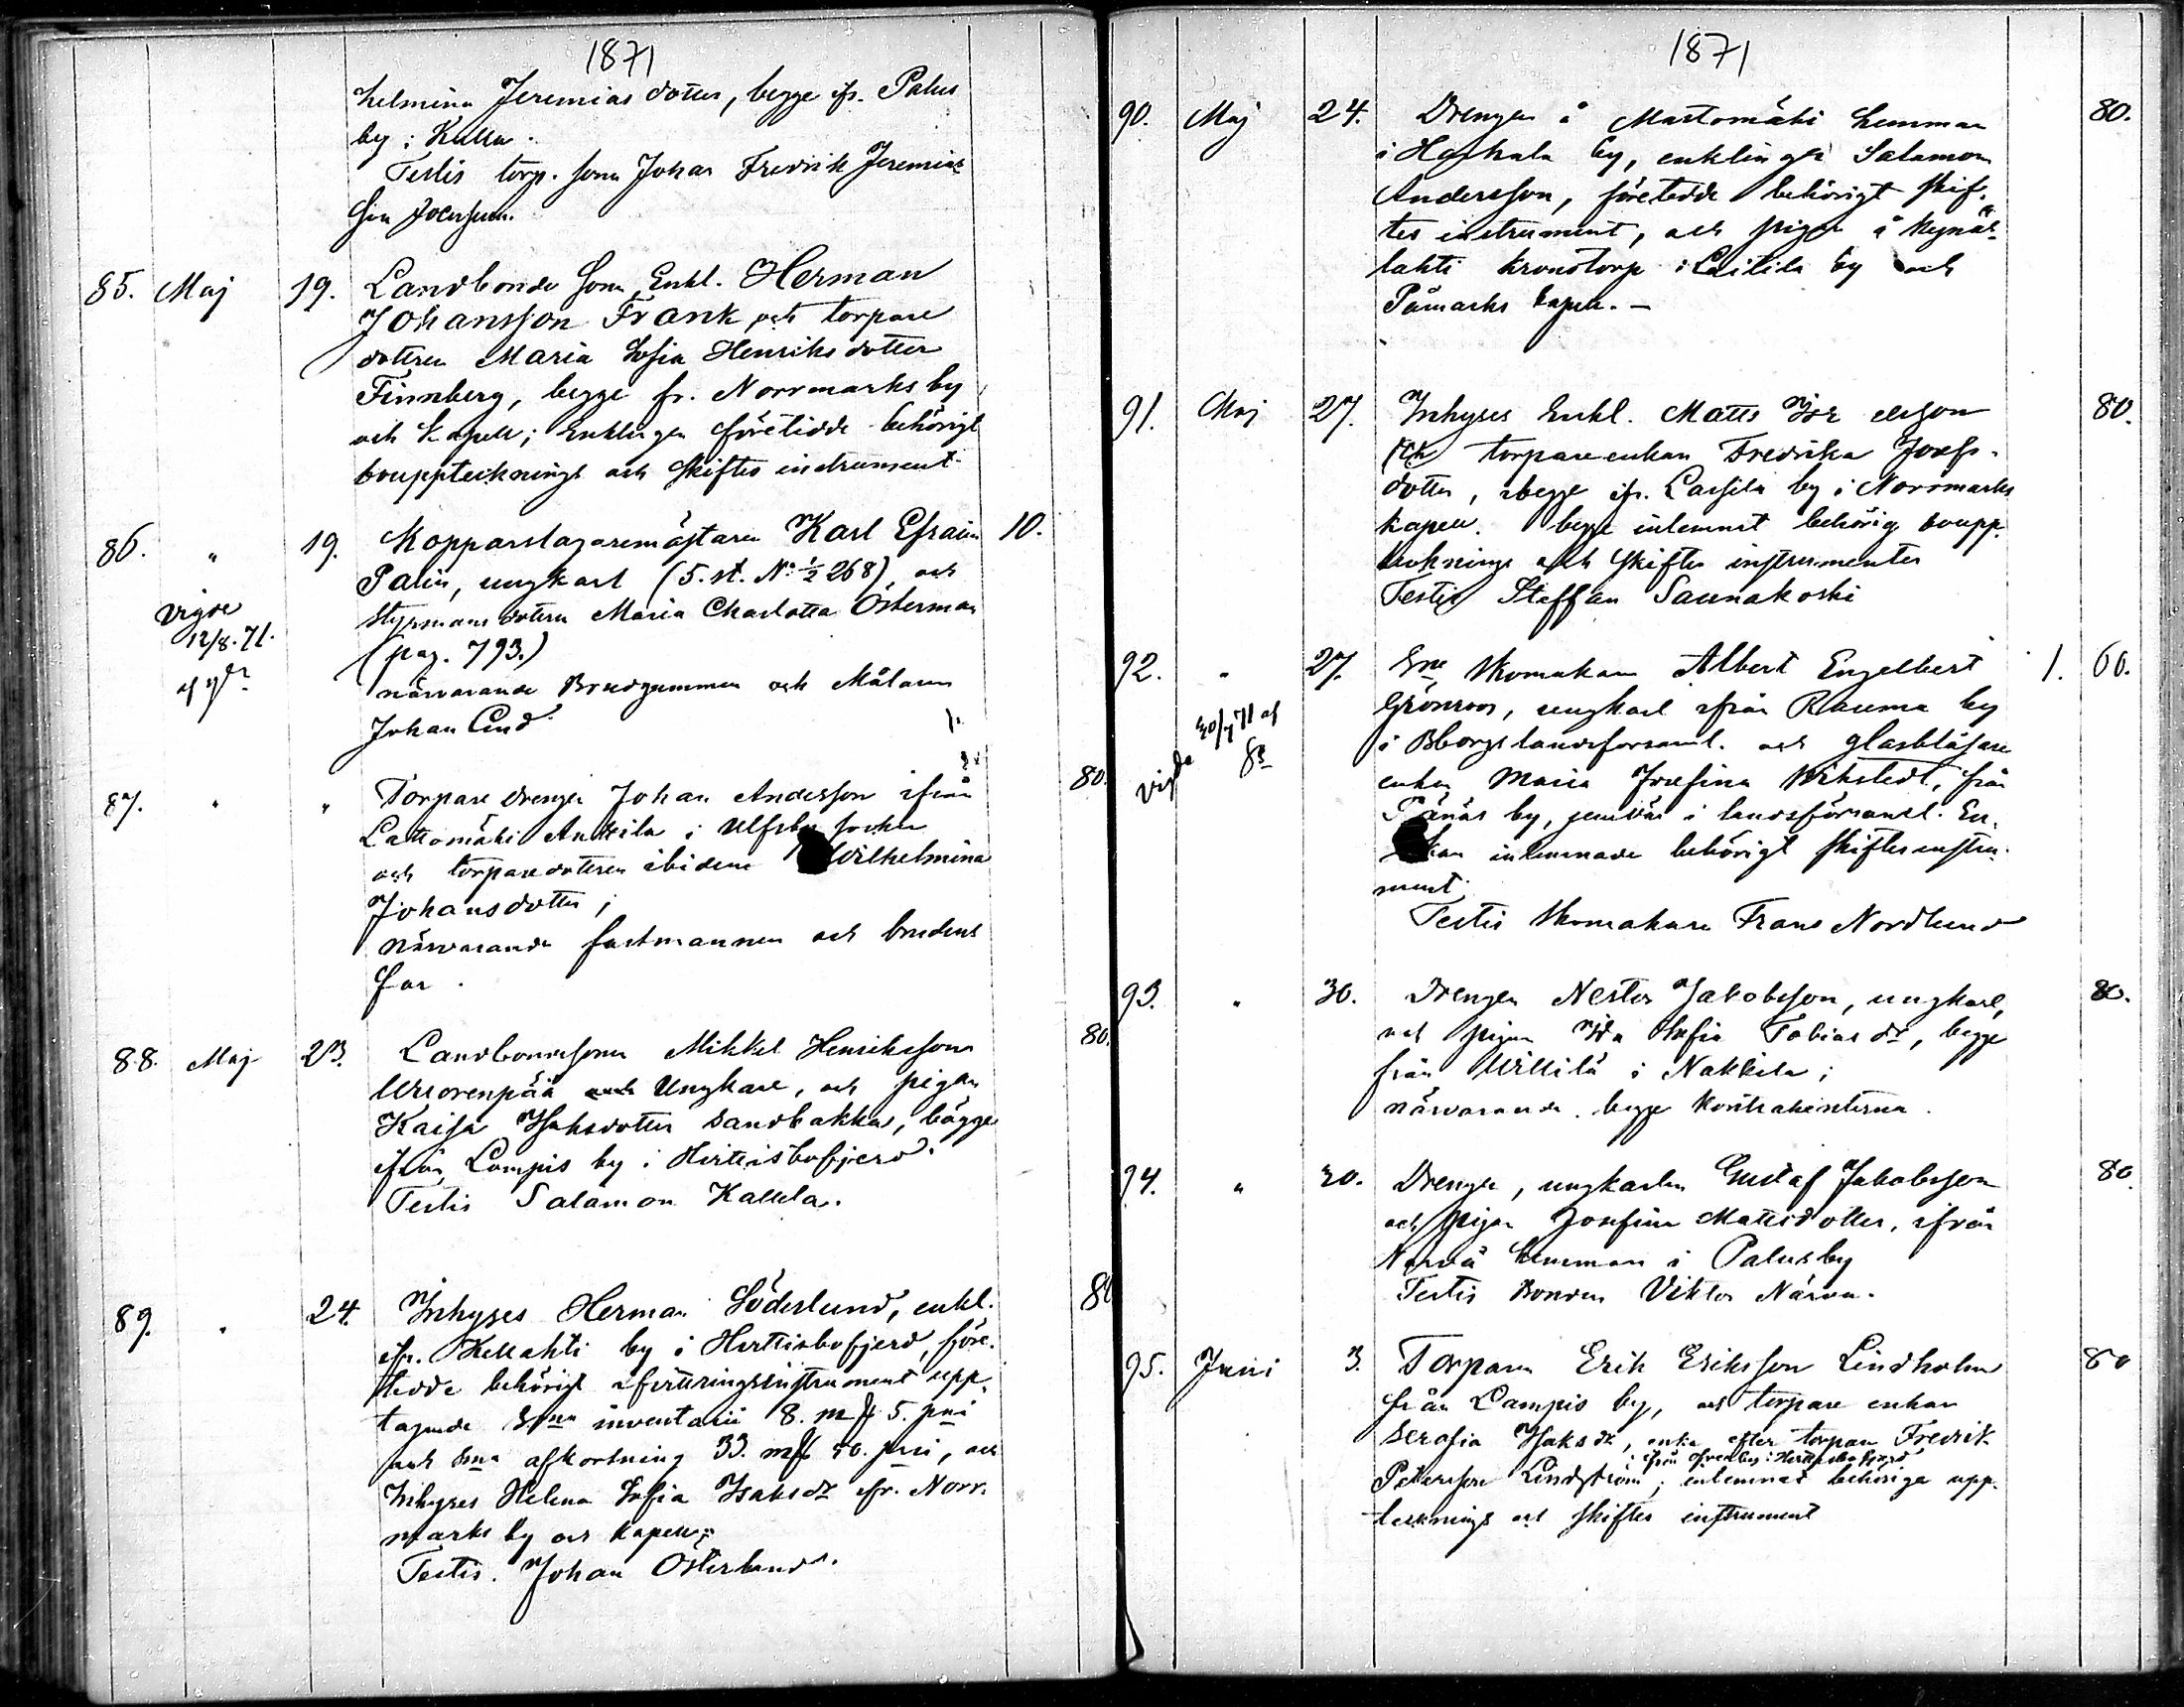 1871
helmina Jeremias dotter, begge ifr. Palus
by i Kulla.
Testis torp. son Johan Fredrik Jeremias
son
85. Maj 19. Landbonde Son Enkl. Herman
Johansson Frank och torpare
dottren Maria Sofia Henriks dotter
Finnberg, begge fr. Norrmarks by
och Kapell; Enklingen företedde behörigt
bouppteknings och Skiftes instrument
86. " 19. Kopparslagaremästaren Karl Efraim 10.
Palin, ungkarl (5. st. No: ½ 268), och
Styrmans dottern Maria Charlotta Österman
(pag. 793.)
vigde
12/8.71.
närvarande Brudgummen och Målaren
Johan Lind
87. " " Torpare drengen Johan Andersson ifrån 80.
Lattomäki Anttila i Ulfsby socken
och torparedottren ibidem Wilhelmina
Johansdotter;
närvarande fästmannen och brudens
far.
88. Maj 23. Landbondesonen Mikkel Henriksson 80.
Ungkarl, och pigan
Kaisa Isaksdotter Sandbakka, bägge
ifrån Lampis by i Hvittisbofjerd.
Testis Salamon Kallela.
89. " 24. Inhyses Herman Söderlund, enkl. 80
ifr. Kellahti by i Hvittisbofjerd, före-
tedde behörigt afvittringsinstrument upp-
tagande inventarii 8. mf 5. pni
och afkortning 33. mf 50. pni, och
Inhyses Helena Sofia Isaksdr ifr. Norr-
marks by och Kapell;
Testis. Johan Österlund.
1871
90. Maj 24. Drengen å Mastomäki hemman 80.
i Harhala by, enklingen Salamon
Andersson, företedde behörigt skif-
tes instrument, och pigan å
lahti kronotorp i Leitila by och
Påmarks kapell. —
91. Maj 27. Inhyses Enkl. Matts Isr elsson 80.
och torpareenkan Fredrika Josefs-
dotter, begge ifr. Lassila by i Norrmarks
kapell. begge inlemnat behörig boupp-
teknings och Skiftes instrumenter
Testis Staffan Saunakoski
92. " 27. Skomakaren Albert Engelbert 1. 60.
Grönroos, ungkarl ifrån Rauma by
i Bborgs landsforsaml. och glasblåsare
enkan Maria Josefina Wikstedt, från
by, jemväl i landsförsaml. En-
kan inlemnade behörigt skiftesinstru-
ment.
vigde 30/7 71 af
Testis Skomakare Frans Nordlund
93. " 30. Drengen Nestor Jakobsson, ungkarl, 80.
och pigan Ida Sofia Tobias dr, begge
från Willilä i Nakkila;
närvarande begge kontrahenterna.
94. " 30. Drengen, ungkarlen Gustaf Jakobsson 80
och pigan Josefina Mattsdotter, ifrån
Närvä hemman i Palus by
Testis Bonden Viktor Närvä.
95. Juni 3. Torparen Erik Eriksson Lindholm 80
från Lampis by, och torpare enkan
Serafia Isaksdr, enka efter torparen Fredrik
ifrån by i Hvittisbofjerd
Petersson Lindström; inlemnat behöriga upp-
teknings och skiftes instrument